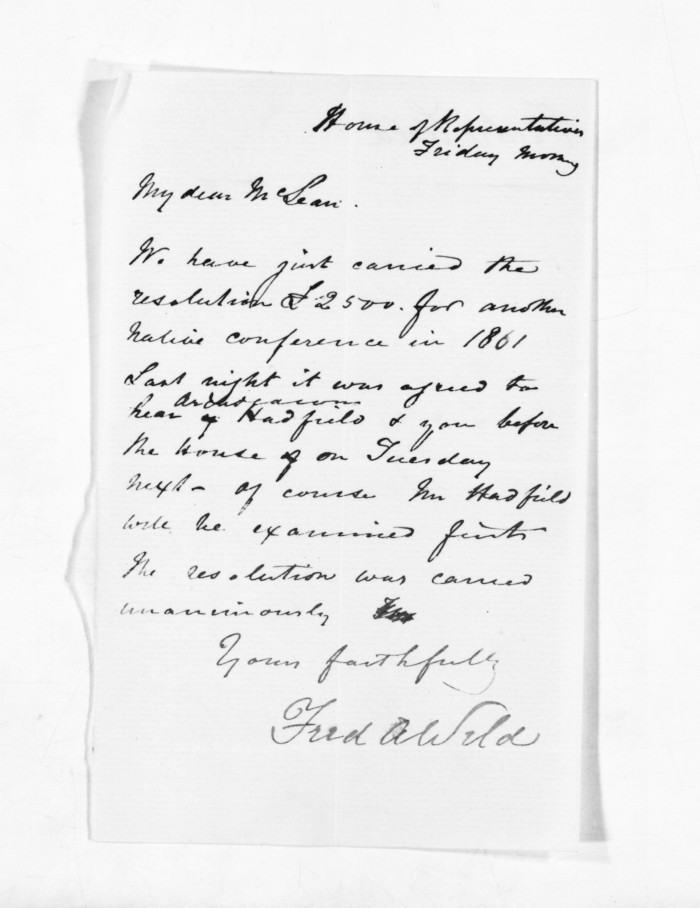 House of Representatives
Friday Morng
My dear McLean.
We have just carried the
resolution £2500. for another
native conference in 1861
Last night it was agreed to
Archdeacon
hear Hadfield & you before
the House on Tuesday
next - of course Mr Hadfield
will be examined first
The resolution was carried
unanimously
Yours faithfully
Fred A Weld